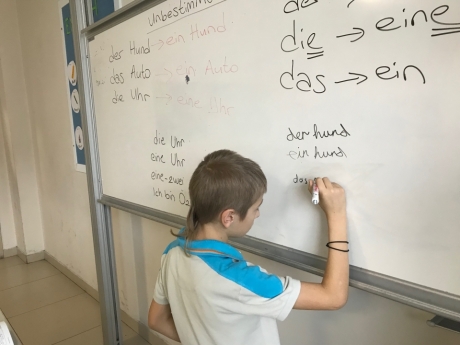 der Hund → ein Hund
das Auto → ein Auto
die Uhr → eine Uhr
die → eine
das → ein
die Uhr
eine Uhr
eine-zwei
Ich bin
der hund
ein hund
das